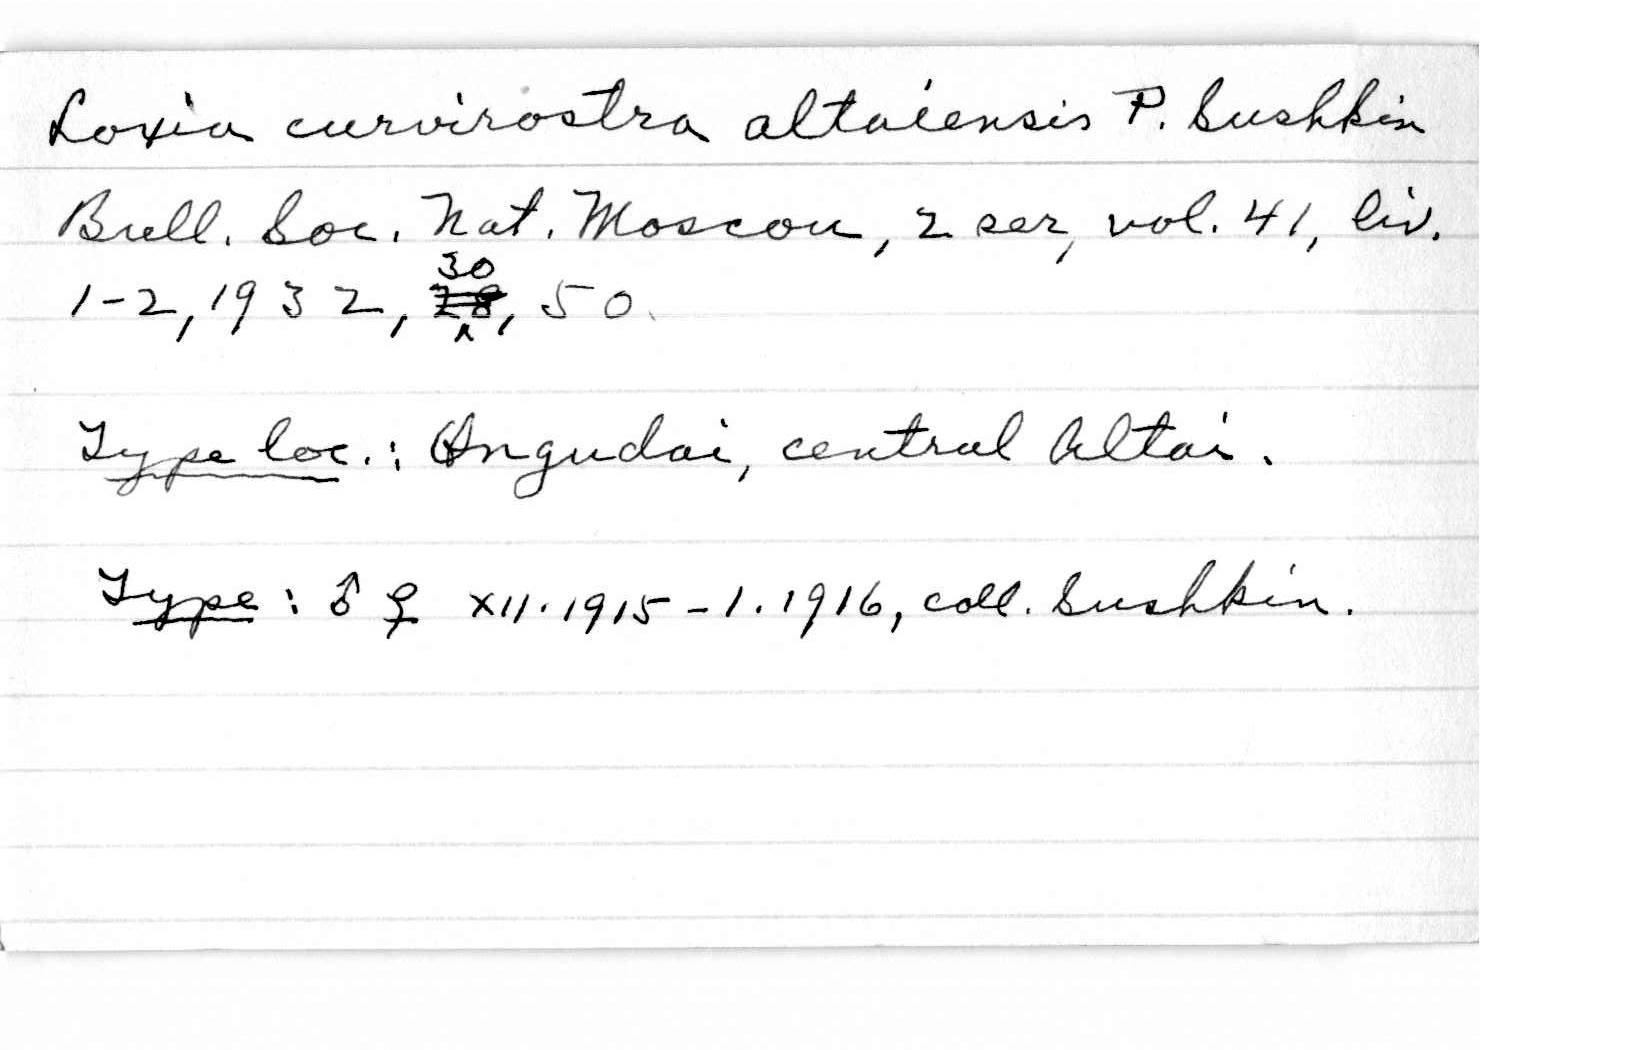 Loxia curvirostra altaiensis P. Sushkin
Bull. Soc. Nat. Moscou, 2 ser, vol. 41, liv.
30
1-2, 1932, 28, 50.
Type loc.: Ongudai, central Altai.
Type: ♂ ♀ XII.1915-1.1916, coll. Sushkin.